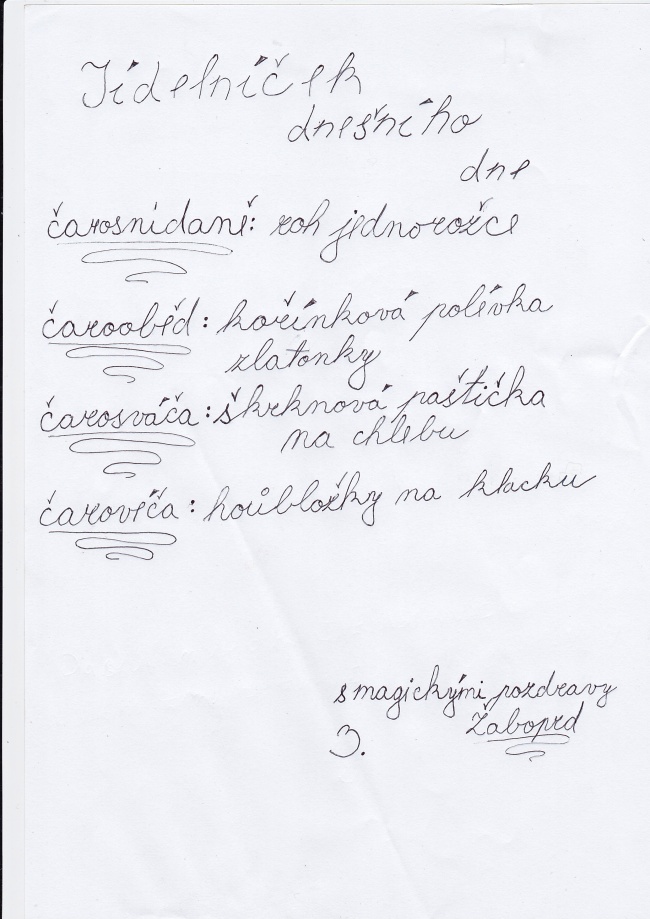 Jídelníček
dnešního
dne
čarosnídaně: roh jednorožce
čarooběd: kořínková polévka
zlatonky
čarosváča: škrknová paštička
na chlebu
čarovéča: houbložky na klacku
s magickými pozdravy
Žaboprd
3.